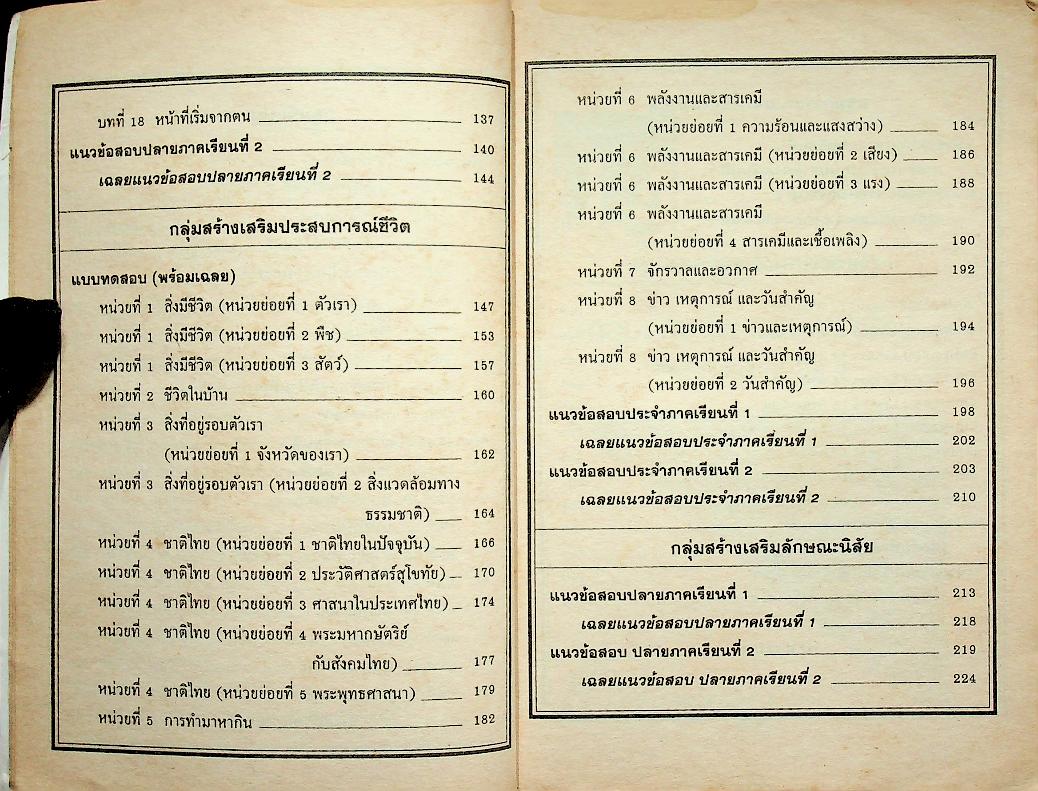 บทที่ 18 หน้าที่เริ่มจากตน 137
แนวข้อสอบปลายภาคเรียนที่ 2 140
เฉลยแนวข้อสอบปลายภาคเรียนที่ 2 144
กลุ่มสร้างเสริมประสบการณ์ชีวิต
แบบทดสอบ (พร้อมเฉลย)
หน่วยที่ 1 สิ่งมีชีวิต (หน่วยย่อยที่ 1 ตัวเรา) 147
หน่วยที่ 1 สิ่งมีชีวิต (หน่วยย่อยที่ 2 พืช) 153
หน่วยที่ 1 สิ่งมีชีวิต (หน่วยย่อยที่ 3 สัตว์) 157
หน่วยที่ 2 ชีวิตในบ้าน 160
หน่วยที่ 3 สิ่งที่อยู่รอบตัวเรา
(หน่วยย่อยที่ 1 จังหวัดของเรา) 162
หน่วยที่ 3 สิ่งที่อยู่รอบตัวเรา (หน่วยย่อยที่ 2 สิ่งแวดล้อมทาง
ธรรมชาติ) 164
หน่วยที่ 4 ชาติไทย (หน่วยย่อยที่ 1 ชาติไทยในปัจจุบัน) 166
หน่วยที่ 4 ชาติไทย (หน่วยย่อยที่ 2 ประวัติศาสตร์สุโขทัย) 170
หน่วยที่ 4 ชาติไทย (หน่วยย่อยที่ 3 ศาสนาในประเทศไทย) 174
หน่วยที่ 4 ชาติไทย (หน่วยย่อยที่ 4 พระมหากษัตริย์
กับสังคมไทย) 177
หน่วยที่ 4 ชาติไทย (หน่วยย่อยที่ 5 พระพุทธศาสนา) 179
หน่วยที่ 5 การทำมาหากิน 182
หน่วยที่ 6 พลังงานและสารเคมี
(หน่วยย่อยที่ 1 ความร้อนและแสงสว่าง) 184
หน่วยที่ 6 พลังงานและสารเคมี (หน่วยย่อยที่ 2 เสียง) 186
หน่วยที่ 6 พลังงานและสารเคมี (หน่วยย่อยที่ 3 แรง) 188
หน่วยที่ 6 พลังงานและสารเคมี
(หน่วยย่อยที่ 4 สารเคมีและเชื้อเพลิง) 190
หน่วยที่ 7 จักรวาลและอวกาศ 192
หน่วยที่ 8 ข่าว เหตุการณ์ และวันสำคัญ
(หน่วยย่อยที่ 1 ข่าวและเหตุการณ์) 194
หน่วยที่ 8 ข่าว เหตุการณ์ และวันสำคัญ
(หน่วยย่อยที่ 2 วันสำคัญ) 196
แนวข้อสอบประจำภาคเรียนที่ 1 198
เฉลยแนวข้อสอบประจำภาคเรียนที่ 1 202
แนวข้อสอบประจำภาคเรียนที่ 2 203
เฉลยแนวข้อสอบประจำภาคเรียนที่ 2 210
กลุ่มสร้างเสริมลักษณะนิสัย
แนวข้อสอบปลายภาคเรียนที่ 1 213
เฉลยแนวข้อสอบปลายภาคเรียนที่ 1 218
แนวข้อสอบ ปลายภาคเรียนที่ 2 219
เฉลยแนวข้อสอบ ปลายภาคเรียนที่ 2 224